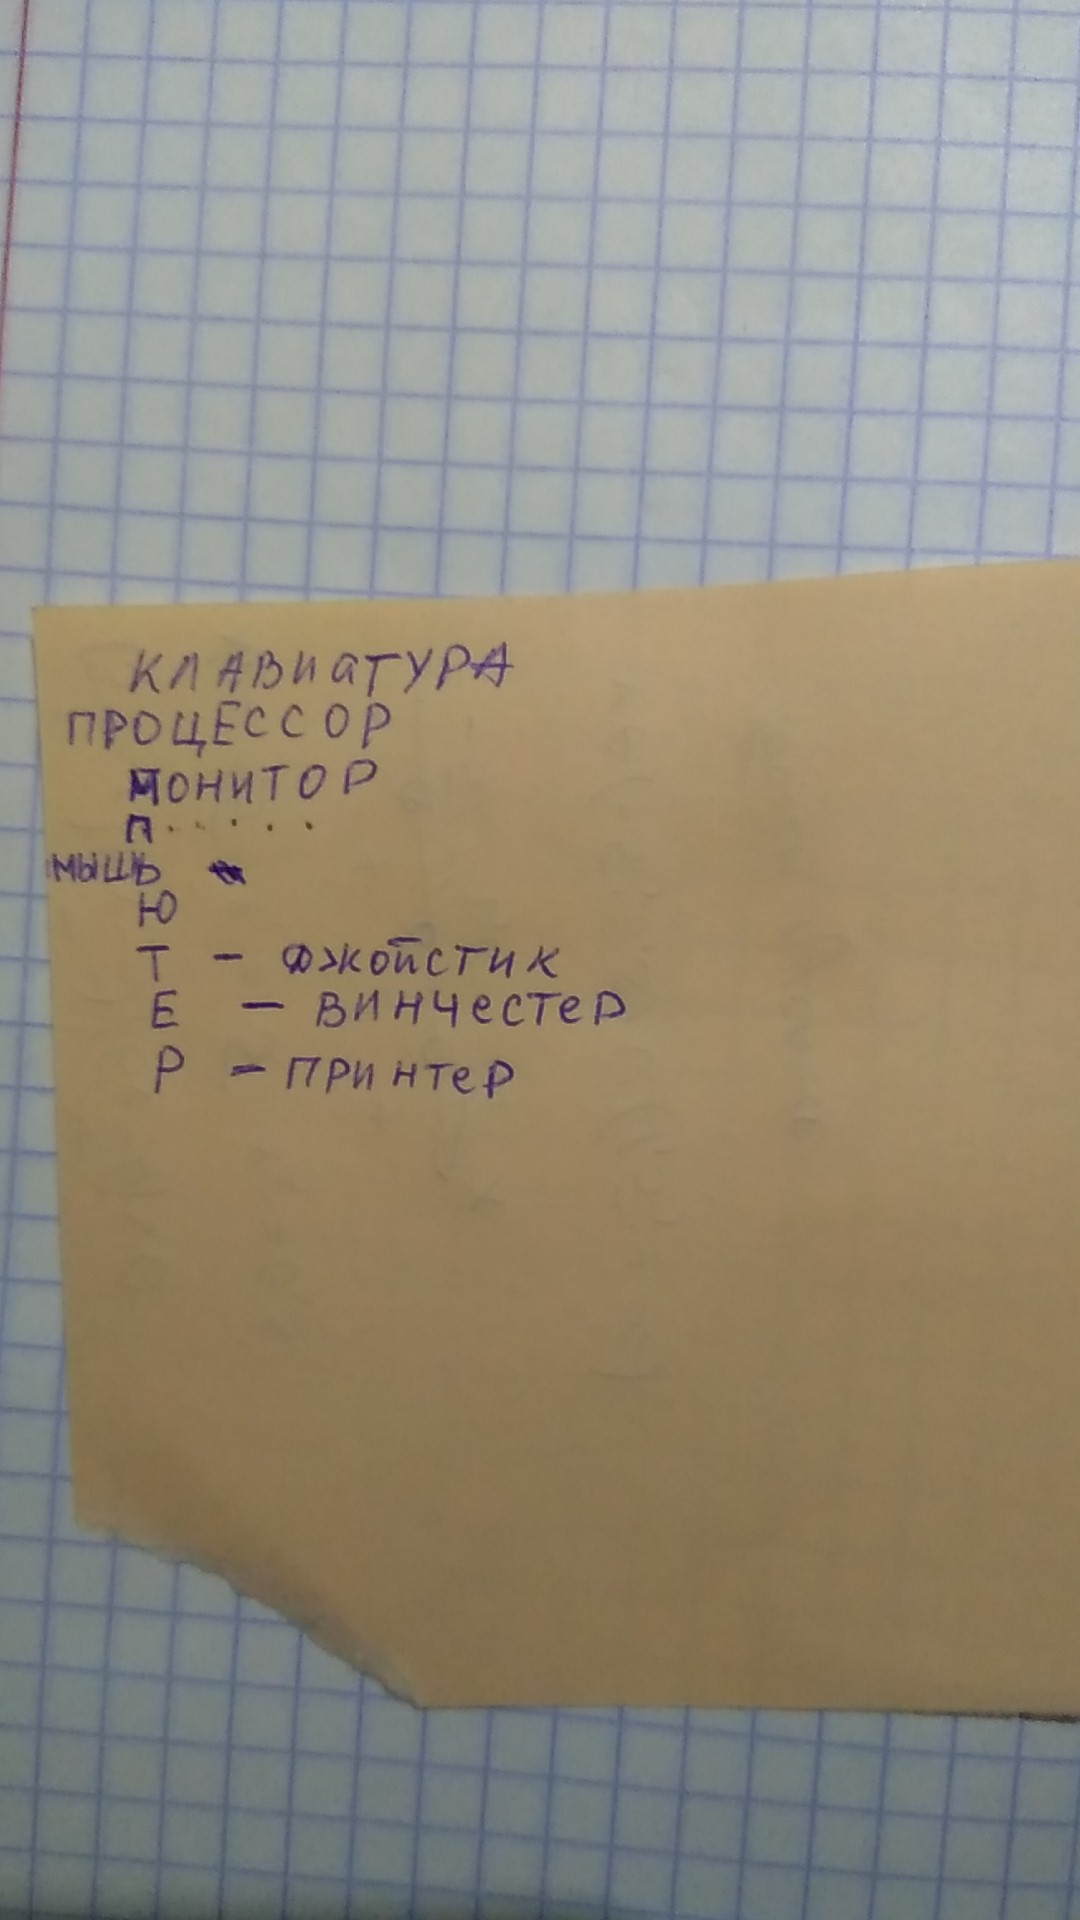 КЛАВИаТУРА
ПРОЦЕССОР
МОНИТОР
П.....
МЫШЬ
Ю
Т - джойстик
Е - ВИНЧеСТеР
Р - ПРИНТеР